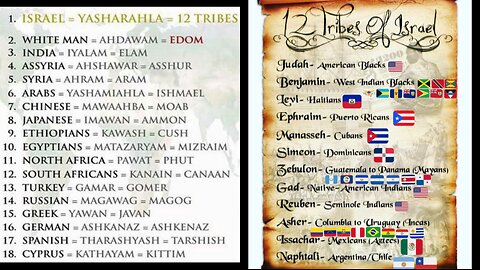 1. ISRAEL = YASHARAHLA = 12 TRIBES
2. WHITE MAN = AHDAWAM = EDOM
3. INDIA = IYALAM = ELAM
4. ASSYRIA = AHSHAWAR = ASSHUR
5. SYRIA = AHRAM = ARAM
6. ARABS = YASHAMIAHLA = ISHMAEL
7. CHINESE = MAWAAHBA = MOAB
8. JAPANESE = IMAWAN = AMMON
9. ETHIOPIANS = KAWASH = CUSH
10. EGYPTIANS = MATAZARYAM = MIZRAIM
11. NORTH AFRICA = PAWAT = PHUT
12. SOUTH AFRICANS = KANAIN = CANAAN
13. TURKEY = GAMAR = GOMER
14. RUSSIAN = MAGAWAG = MAGOG
15. GREEK = YAWAN = JAVAN
16. GERMAN = ASHKANAZ = ASHKENAZ
17. SPANISH = THARASHYASH = TARSHISH
18. CYPRUS = KATHAYAM = KITTIM
12 Tribes Of Israel
Judah- American Blacks
Benjamin- West Indian Blacks
Levi- Haitians
Ephraim- Puerto Ricans
Manasseh- Cubans
Simeon- Dominicans
Zebulon- Guatemala to Panama (Mayans)
Gad- Native-American Indians
Reuben- Seminole Indians
Asher- Columbia to Uruguay (Incas)
Issachar- Mexicans (Aztecs)
Naphtali- Argentina/Chile